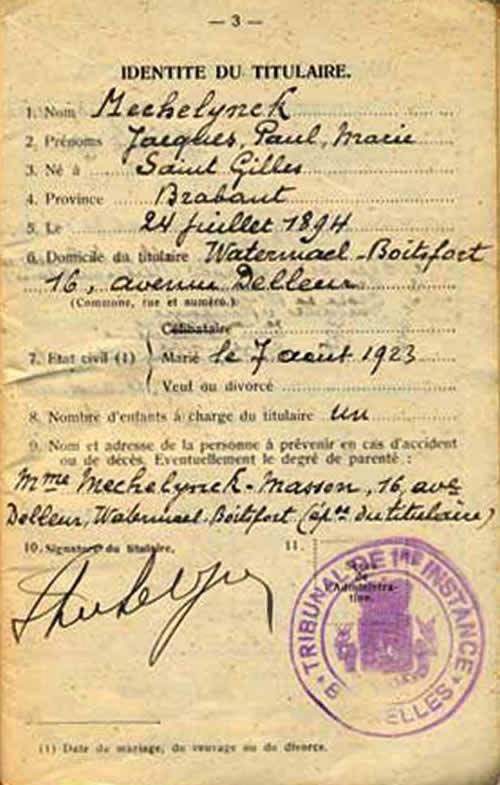 — 3 —
IDENTITE DU TITULAIRE.
1. Nom Mechelynck
2. Prénoms Jacques, Paul, Marie
3. Né à Saint Gilles
4. Province Brabant
5. Le 24 juillet 1894
6. Domicile du titulaire Watermael-Boitsfort
16, avenue Delleur
(Commune, rue et numéro.)
Célibataire
7. Etat civil (1) Marié le 7 août 1923
Veuf ou divorcé
8. Nombre d'enfants à charge du titulaire un
9. Nom et adresse de la personne à prévenir en cas d'accident
ou de décès. Eventuellement le degré de parenté :
Mme Mechelynck-Masson, 16, ave
Delleur, Watermael-Boitsfort (épse du titulaire)
10. Signature du titulaire.
11.
de
l'Administra-
tion.
TRIBUNAL DE 1RE INSTANCE
(1) Date du mariage, du veuvage ou du divorce.